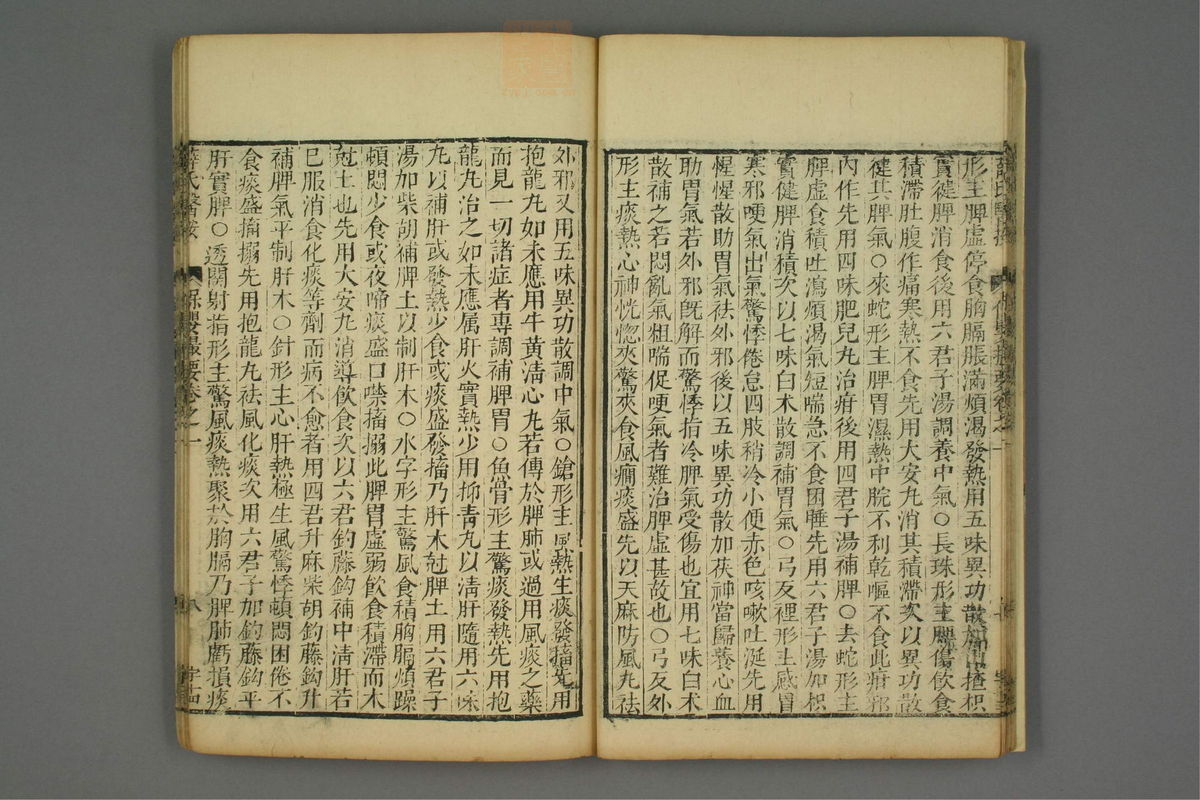 形主脾虛停食胸膈脹滿煩渴發熱用五味異功散加山楂枳
實健脾消食後用六君子湯調養中氣○長珠形主脾傷飲食
積滯肚腹作痛寒熱不食先用大安丸消其積滯次以異功散
健其脾氣○來蛇形主脾胃濕熱中脘不利乾嘔不食此疳邪
內作先用四味肥兒丸治疳後用四君子湯補脾○去蛇形主
脾虛食積吐瀉煩渴氣短喘急不食困睡先用六君子湯加枳
實健脾消積次以七味白朮散調補胃氣○弓反裡形主感冒
寒邪哽氣出氣驚悸倦怠四肢稍冷小便赤色咳嗽吐涎先用
惺惺散助胃氣祛外邪後以五味異功散加茯神當歸養心血
助胃氣若外邪既解而驚悸指冷脾氣受傷也宜用七味白朮
散補之若悶亂氣粗喘促哽氣者難治脾虛甚故也○弓反外
形主痰熱心神恍惚夾驚夾食風癇痰盛先以天麻防風丸祛
外邪又用五味異功散調中氣○鎗形主風熱生痰發搐先用
抱龍丸如未應用牛黃清心丸若傳於脾肺或過用風痰之藥
而見一切諸症者專調補脾胃○魚骨形主驚痰發熱先用抱
龍丸治之如未應属肝火實熱少用抑青丸以清肝隨用六味
丸以補肝或發熱少食或痰盛發搐乃肝木尅脾土用六君子
湯加柴胡補脾土以制肝木○水字形主驚風食積胸膈煩躁
頓悶少食或夜啼痰盛口噤搐搦此脾胃虛弱飲食積滯而木
尅土也先用大安丸消導飲食次以六君釣藤鈎補中清肝若
已服消食化痰等劑而病不愈者用四君升麻柴胡釣藤鈎升
補脾氣平制肝木○針形主心肝熱極生風驚悸頓悶困倦不
食痰盛搐搦先用抱龍丸祛風化痰次用六君子加釣藤鈎平
肝實脾○透關射指形主驚風痰熱聚於胸膈乃脾肺虧損痰
薛氏醫按 保嬰撮要卷之一 八